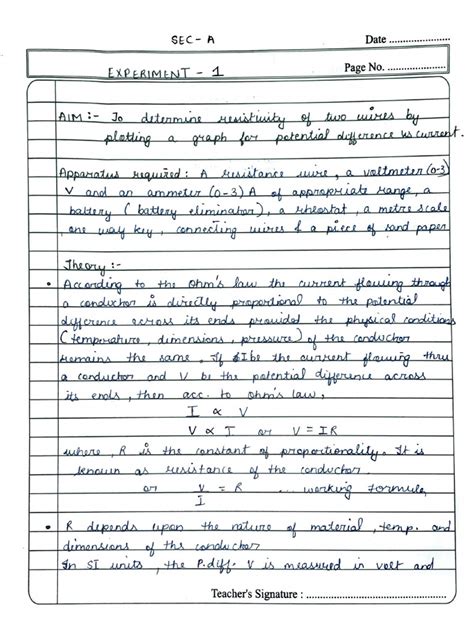 SEC - A
Date ....................
Page No. ....................
EXPERIMENT - 1
AIM :- To determine resistivity of two wires by
plotting a graph for potential difference vs current.
Apparatus required : A resistance wire, a voltmeter (0-3)
V and an ammeter (0-3) A of appropriate range, a
battery (battery eliminator), a rheostat, a metre scale
one way key, connecting wires & a piece of sand paper
Theory :-
• According to the Ohm's law the current flowing through
a conductor is directly proportional to the potential
difference across its ends provided the physical conditions
(temperature, dimensions, pressure) of the conductor
remains the same. If I be the current flowing thru
a conductor and V be the potential difference across
its ends, then acc. to Ohm's law,
I ∝ V
V ∝ I or V = IR
where, R is the constant of proportionality. It is
known as resistance of the conductor.
or V/I = R ... working formula
• R depends upon the nature of material, temp. and
dimensions of the conductor
In SI units, the P.diff. V is measured in volt and
Teacher's Signature : ....................